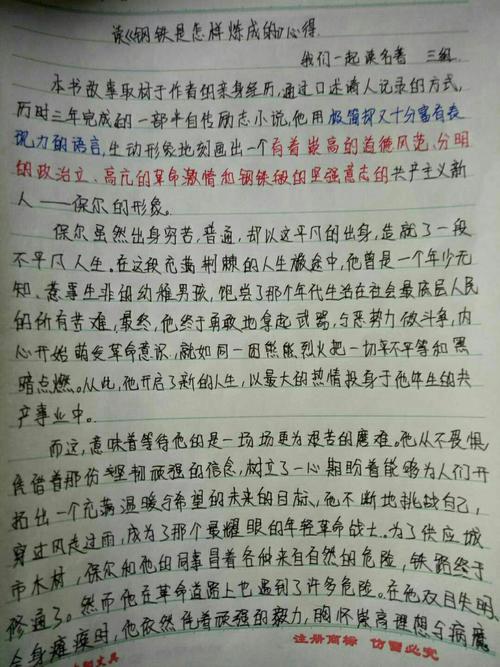 读《钢铁是怎样炼成的》心得
我们一起读名著 三组
本书故事取材于作者的亲身经历,通过口述请人记录的方式,
历时三年完成的一部半自传励志小说,他用极简却又十分富有表
现力的语言,生动形象地刻画出一个有着崇高的道德风范、分明
的政治立、高亢的革命激情和钢铁般的坚强意志的共产主义新
人——保尔的形象。
保尔虽然出身穷苦,普通,却以这平凡的出身,造就了一段
不平凡人生。在这段充满荆棘的人生旅途中,他曾是一个年少无
知、惹事生非的幼稚男孩,饱尝了那个年代生活在社会最底层人民
的所有苦难,最终,他终于勇敢地拿起武器,与恶势力做斗争,内
心开始萌发革命意识,就如同一团熊熊烈火把一切不平等和黑
暗点燃。从此,他开启了新的人生,以最大的热情投身于他毕生的共
产事业中。
而这,意味着等待他的是一场场更为艰苦的磨难。他从不畏惧,
凭借着那份坚韧顽强的信念,树立了一心期盼着能够为人们开
拓出一个充满温暖与希望的未来的目标,他不断地挑战自己,
穿过风走过雨,成为了那个最耀眼的年轻革命战士。为了供应城
市木材,保尔和他的同事冒着各种来自自然的危险,铁路终于
修通了。然而他在革命道路上也遇到了许多危险。在他双目失明,
全身瘫痪时,他依然凭着顽强的毅力,胸怀崇高理想与病魔
注册商标 仿冒必究
文具